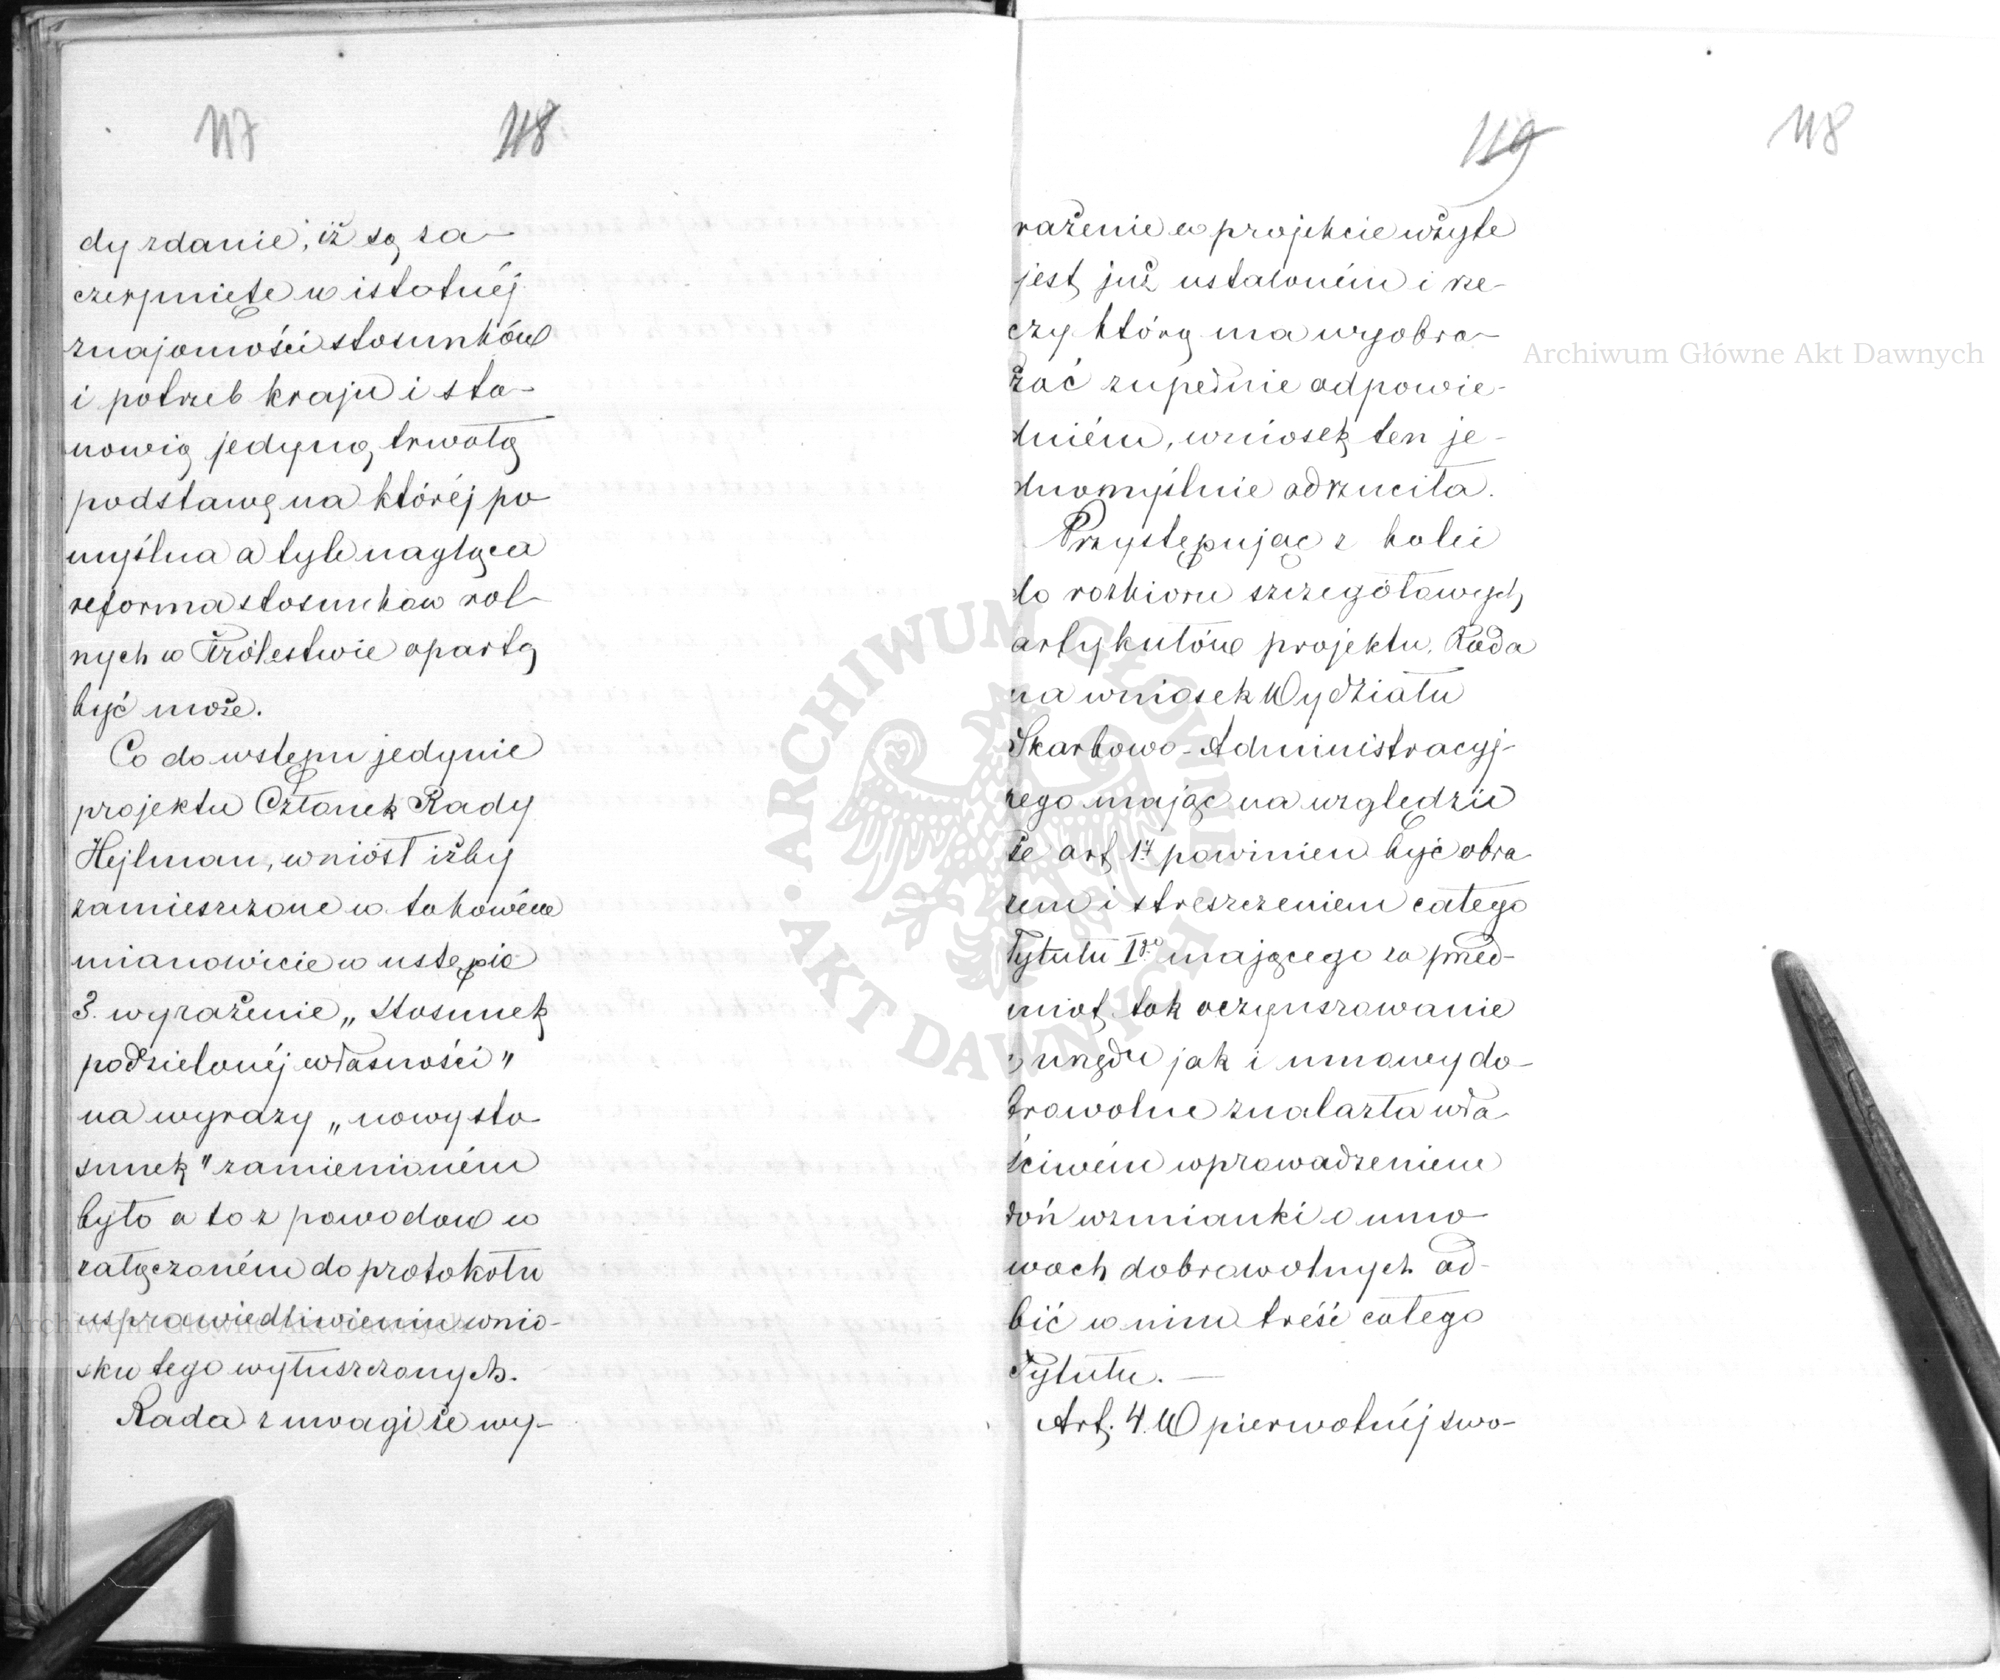 117 118
dy zdanie, iż są za-
czerpnięte w istotnéj
znajomości stosunków
i potrzeb kraju i sta-
nowią jedyną trwałą
podstawę na któréj po
myślna a tyle nagląca
reforma stosunków rol-
nych w Królestwie opartą
być może.
Co do wstępu jedynie
projektu Członek Rady
Hejlman, wniósł iżby
zamieszczone w takowém
mianowicie w ustępie
3. wyrażenie „Stosunek
podzielonéj własności"
na wyrazy „nowy sto
sunek" zamienioném
było a to z powodów w
załączoném do protokołu
usprawiedliwieniu wnio-
sku tego wyłuszczonych.
Rada z uwagi że wy-
119 118
rażenie w projekcie użyte
jest już ustaloném i rze-
czy którą ma wyobra-
żać zupełnie odpowie-
dniém, wniosek ten je-
dnomyślnie odrzuciła.
Przystępując z kolei
do rozbioru szczegółowych
artykułów projektu, Rada
na wniosek Wydziału
Skarbowo-Administracyj-
nego mając na względzie
że art. 1ł powinien być obra
zem i streszczeniem całego
Tytułu Igo mającego za przed-
miot tak oczynszowanie
z urzędu jak i umowy do-
browolne znalazła wła-
ściwém wprowadzeniem
doń wzmianki o umo
wach dobrowolnych od-
bić w nim treść całego
Tytułu. —
Art. 4. W pierwotnéj swo-
ARCHIWUM GŁÓWNE · AKT DAWNYCH ·
Archiwum Główne Akt Dawnych
Archiwum Główne Akt Dawnych